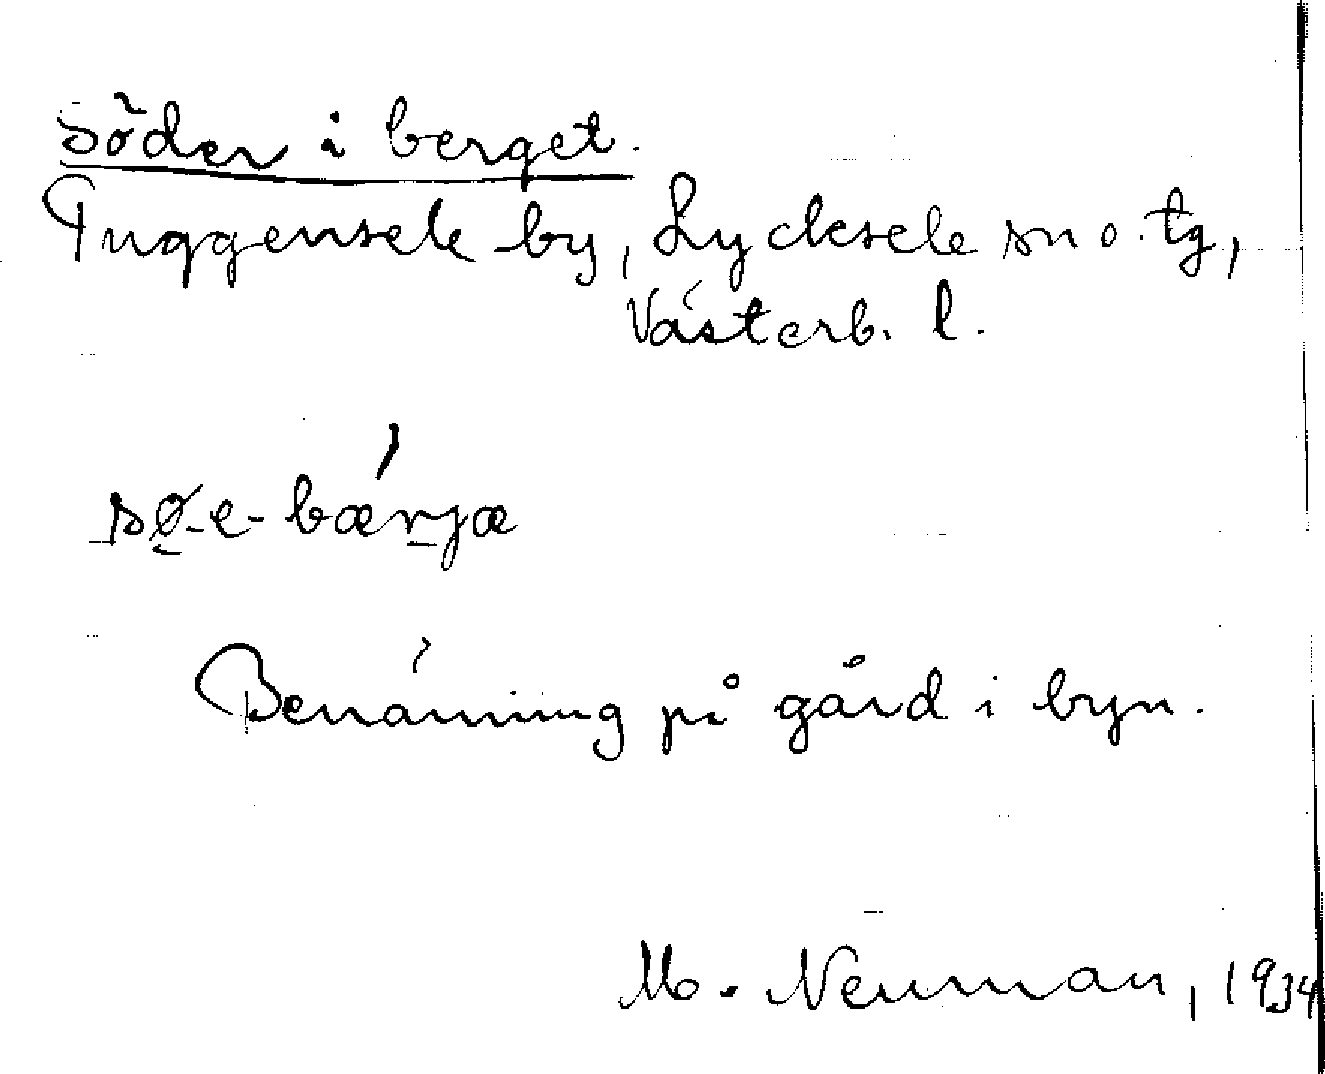 Söder i berget.
Tuggensele by, Lycksele sn o. tg,
Västerb. l.
sø̱-e-bærjæ
Benämning på gård i byn.
M. Neuman, 1934